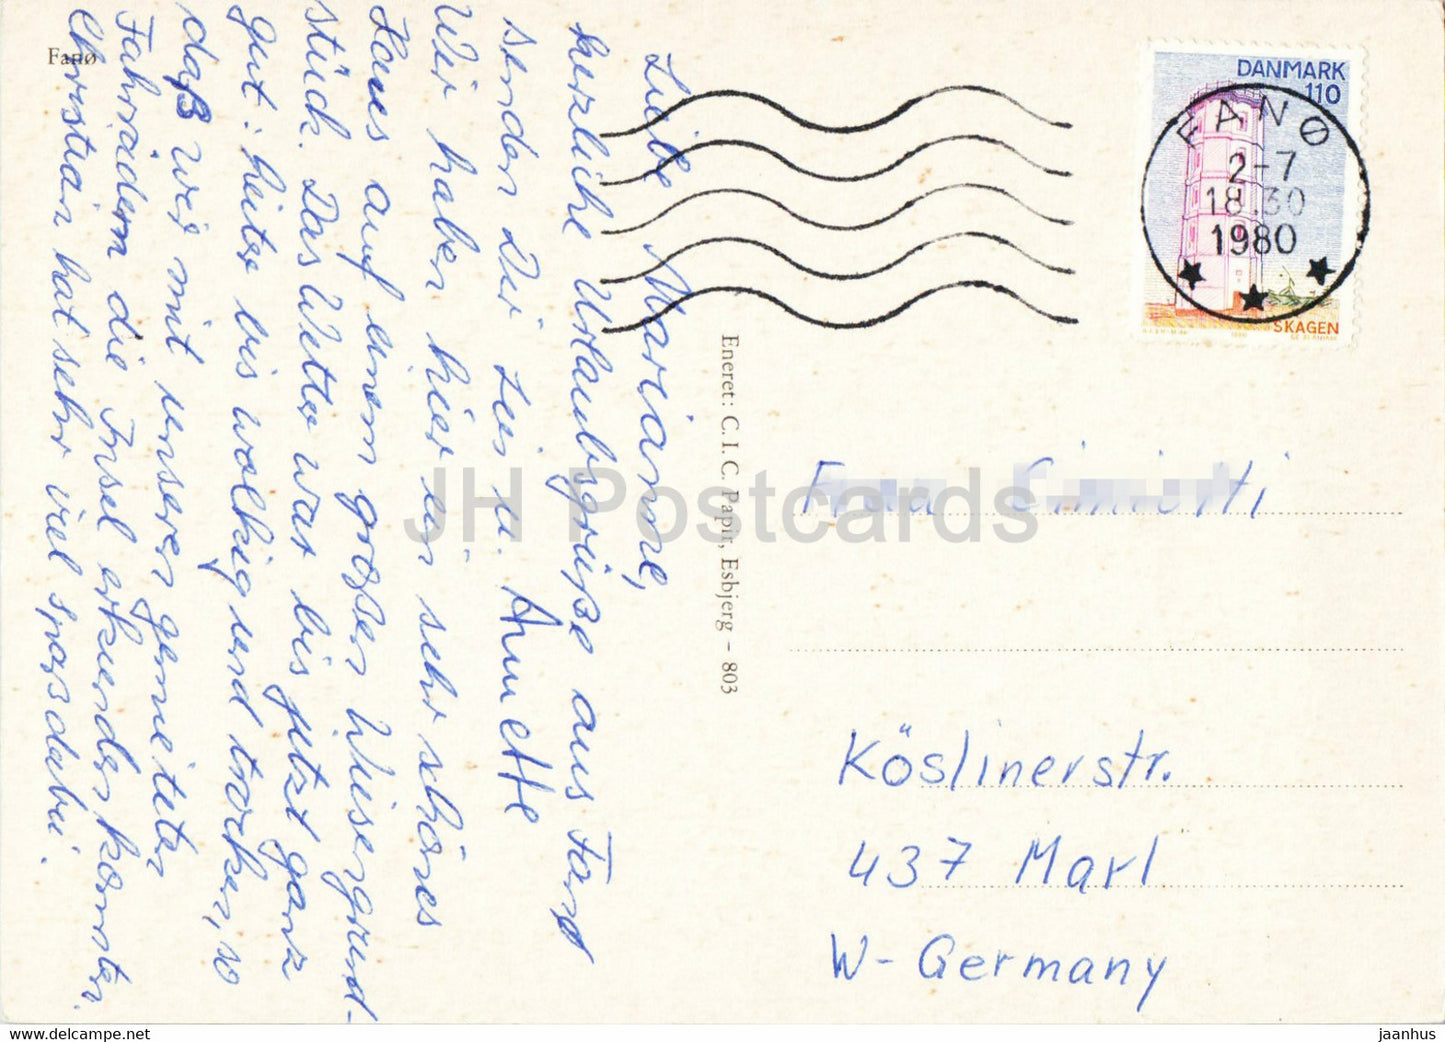 Fanø
Liebe Marianne,
herzliche Urlaubsgrüße aus Fanø
senden Dir
u. Annette
Wir haben hier ein sehr schönes
Haus auf einem großen Wiesengrund-
stück. Das Wetter war bis jetzt ganz
gut: heiter bis wolkig und trocken, so
daß wir mit unseren gemieteten
Fahrrädern die Insel erkunden konnten.
Christian hat sehr viel Spaß dabei.
Eneret: C. I. C. Papir, Esbjerg - 803
DANMARK
110
SKAGEN
FANØ
2-7
18.30
1980
Frau
Köslinerstr.
437 Marl
W-Germany
JH Postcards
jaanhus.com
jaanhus